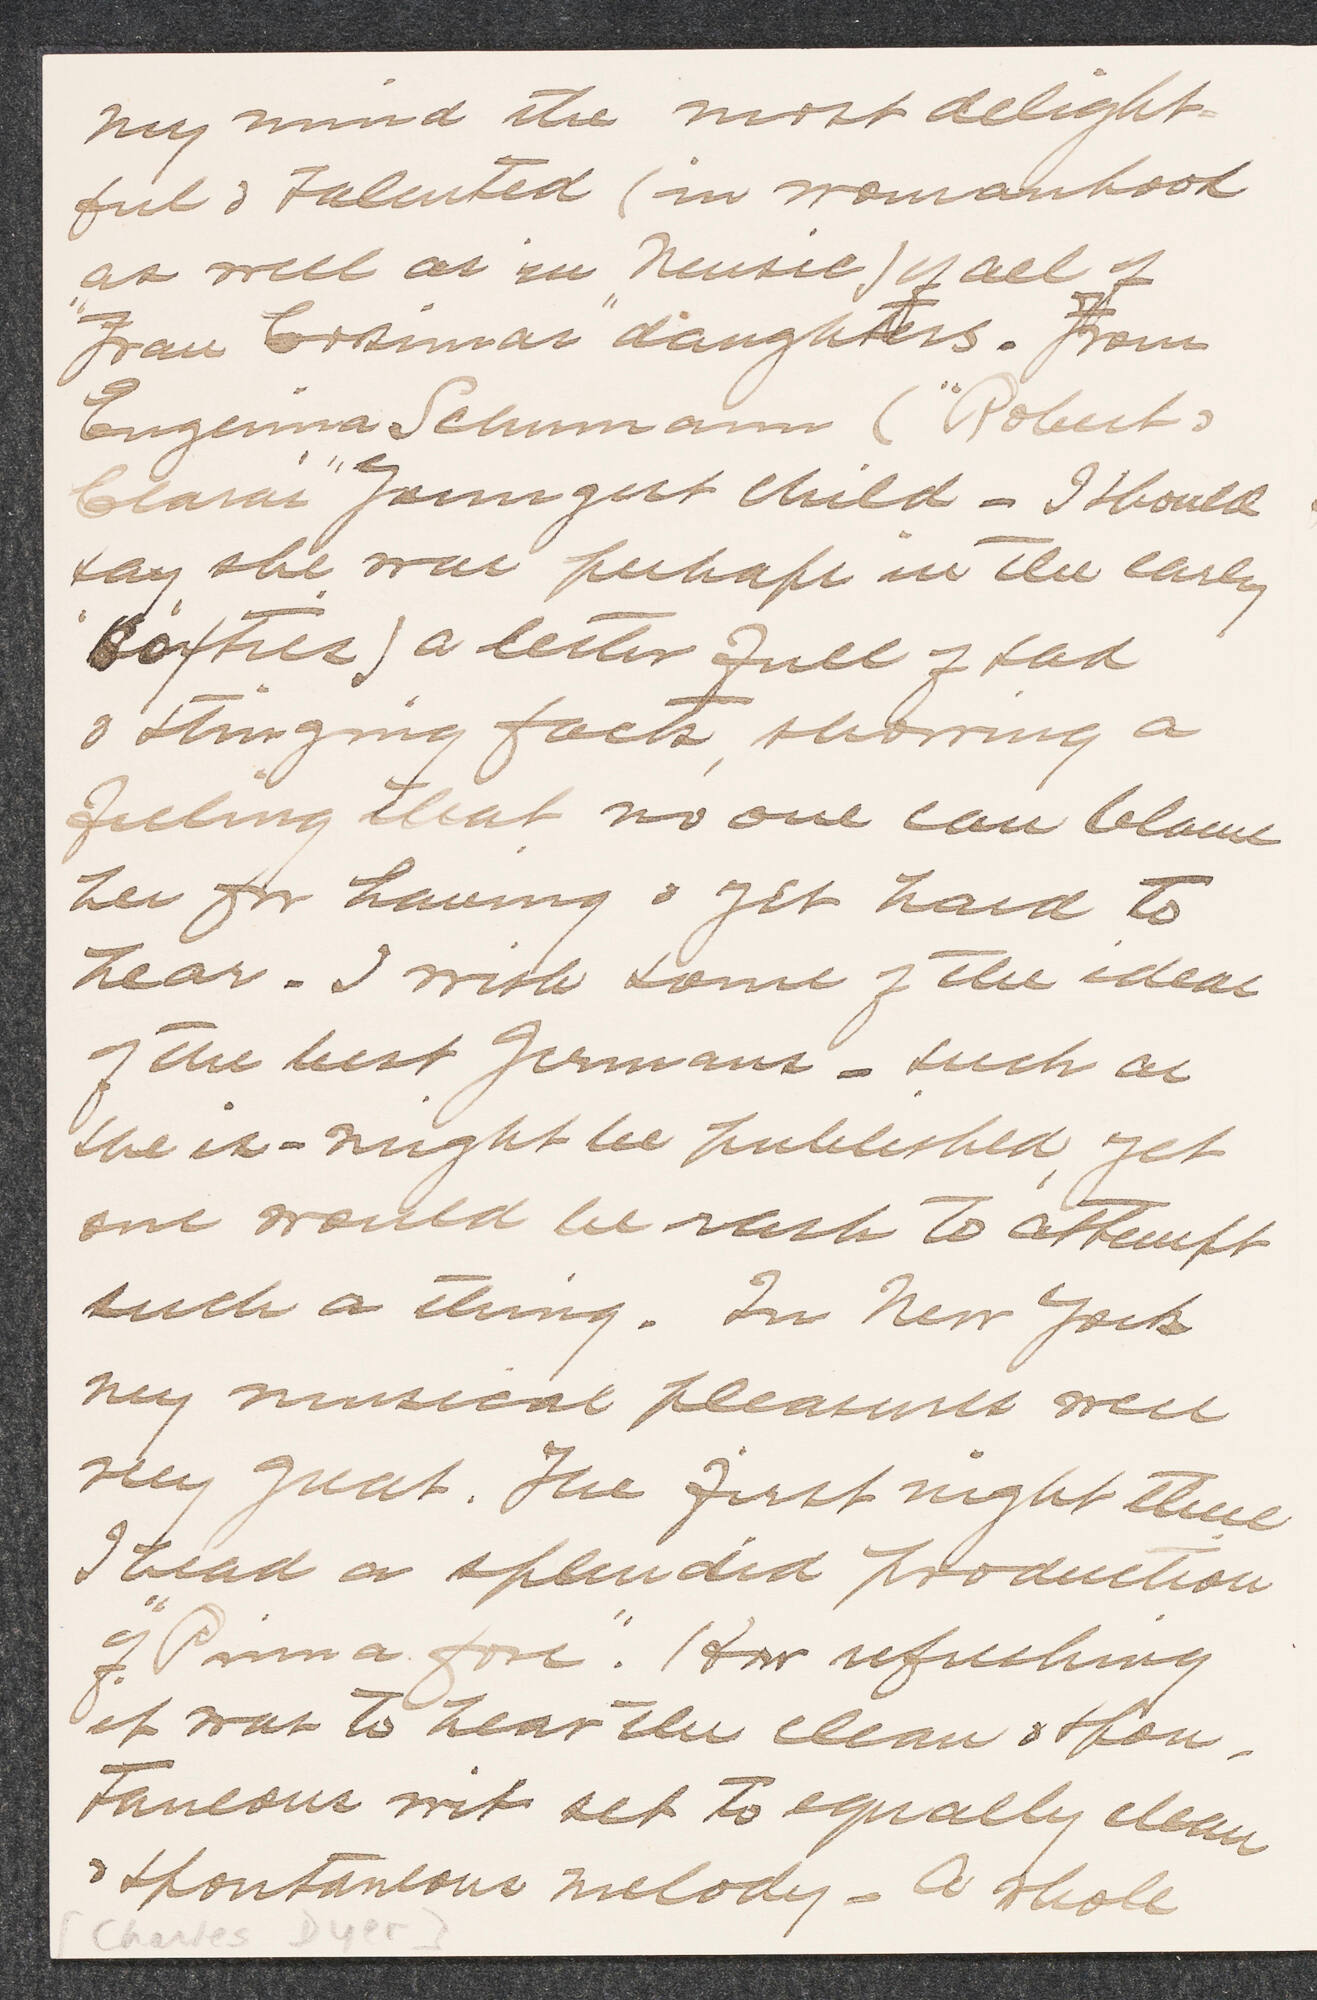 my mind the most delight-
ful & talented (in womanhood
as well as in Music) of all of
"Frau Cosimas" daughters. From
Eugenina Schumann ("Robert &
Claras'" Youngest child - I should
say she was perhaps in the early
"60"ties) a letter full of sad
& stinging facts, showing a
feeling that no one can blame
her for having & yet hard to
hear. I wish some of the ideas
of the best Germans - such as
she is - might be published, yet
one would be rash to attempt
such a thing. In New York
my musical pleasures were
very great. The first night there
I head a splendid production
of "Pinnafore". How refreshing
it was to hear the clean & spon-
taneous wit set to equally clean
& spontaneous melody - A whole
[Charles Dyer]